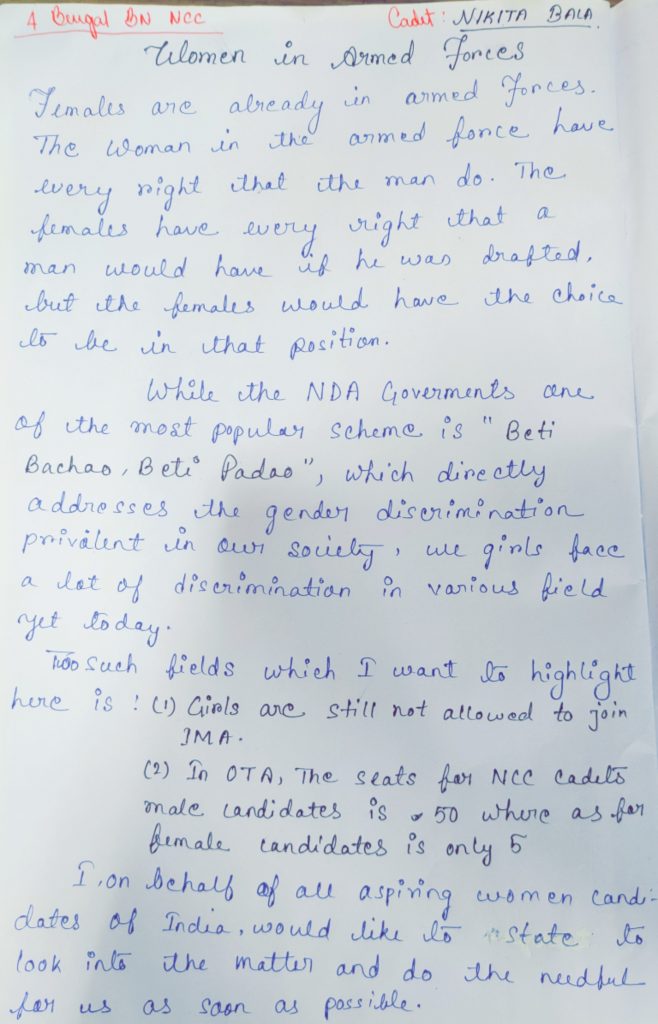 4 Bengal BN NCC Cadet: NIKITA BALA
Women in Armed Forces
Females are already in armed Forces.
The Woman in the armed force have
every right that the man do. The
females have every right that a
man would have if he was drafted,
but the females would have the choice
to be in that position.
While the NDA Goverments one
of the most popular scheme is "Beti
Bachao, Beti Padao", which directly
addresses the gender discrimination
privilent in our society, we girls face
a lot of discrimination in various field
yet today.
Two such fields which I want to highlight
here is : (1) Girls are still not allowed to join
IMA.
(2) In OTA, The seats for NCC cadets
male candidates is 50 where as for
female candidates is only 5
I, on behalf of all aspiring women candi-
dates of India, would like to state to
look into the matter and do the needful
for us as soon as possible.